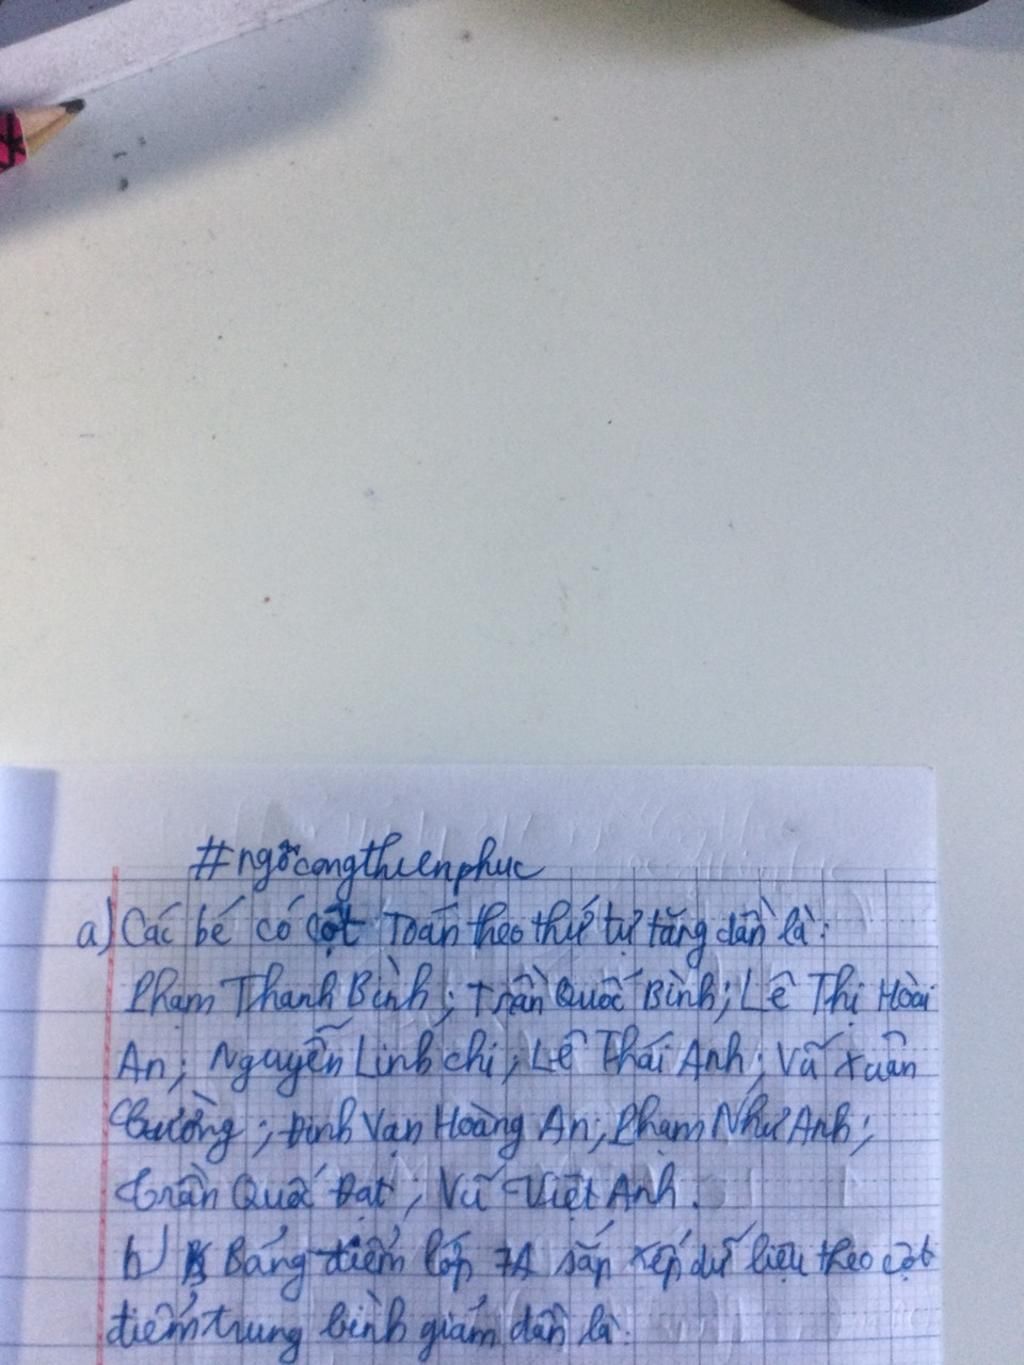 #ngocongthienphuc
a) Các bé có cột Toán theo thứ tự tăng dần là:
Phạm Thanh Bình; Trần Quốc Bình; Lê Thị Hoài
An; Nguyễn Linh chi; Lê Thái Anh; Vũ Xuân
Cường; Đinh Vạn Hoàng An; Phạm Như Anh;
Trần Quốc Đạt; Vũ Việt Anh.
b) Bảng điểm lớp 7A sắp xếp dữ liệu theo cột
điểm trung bình giảm dần là: